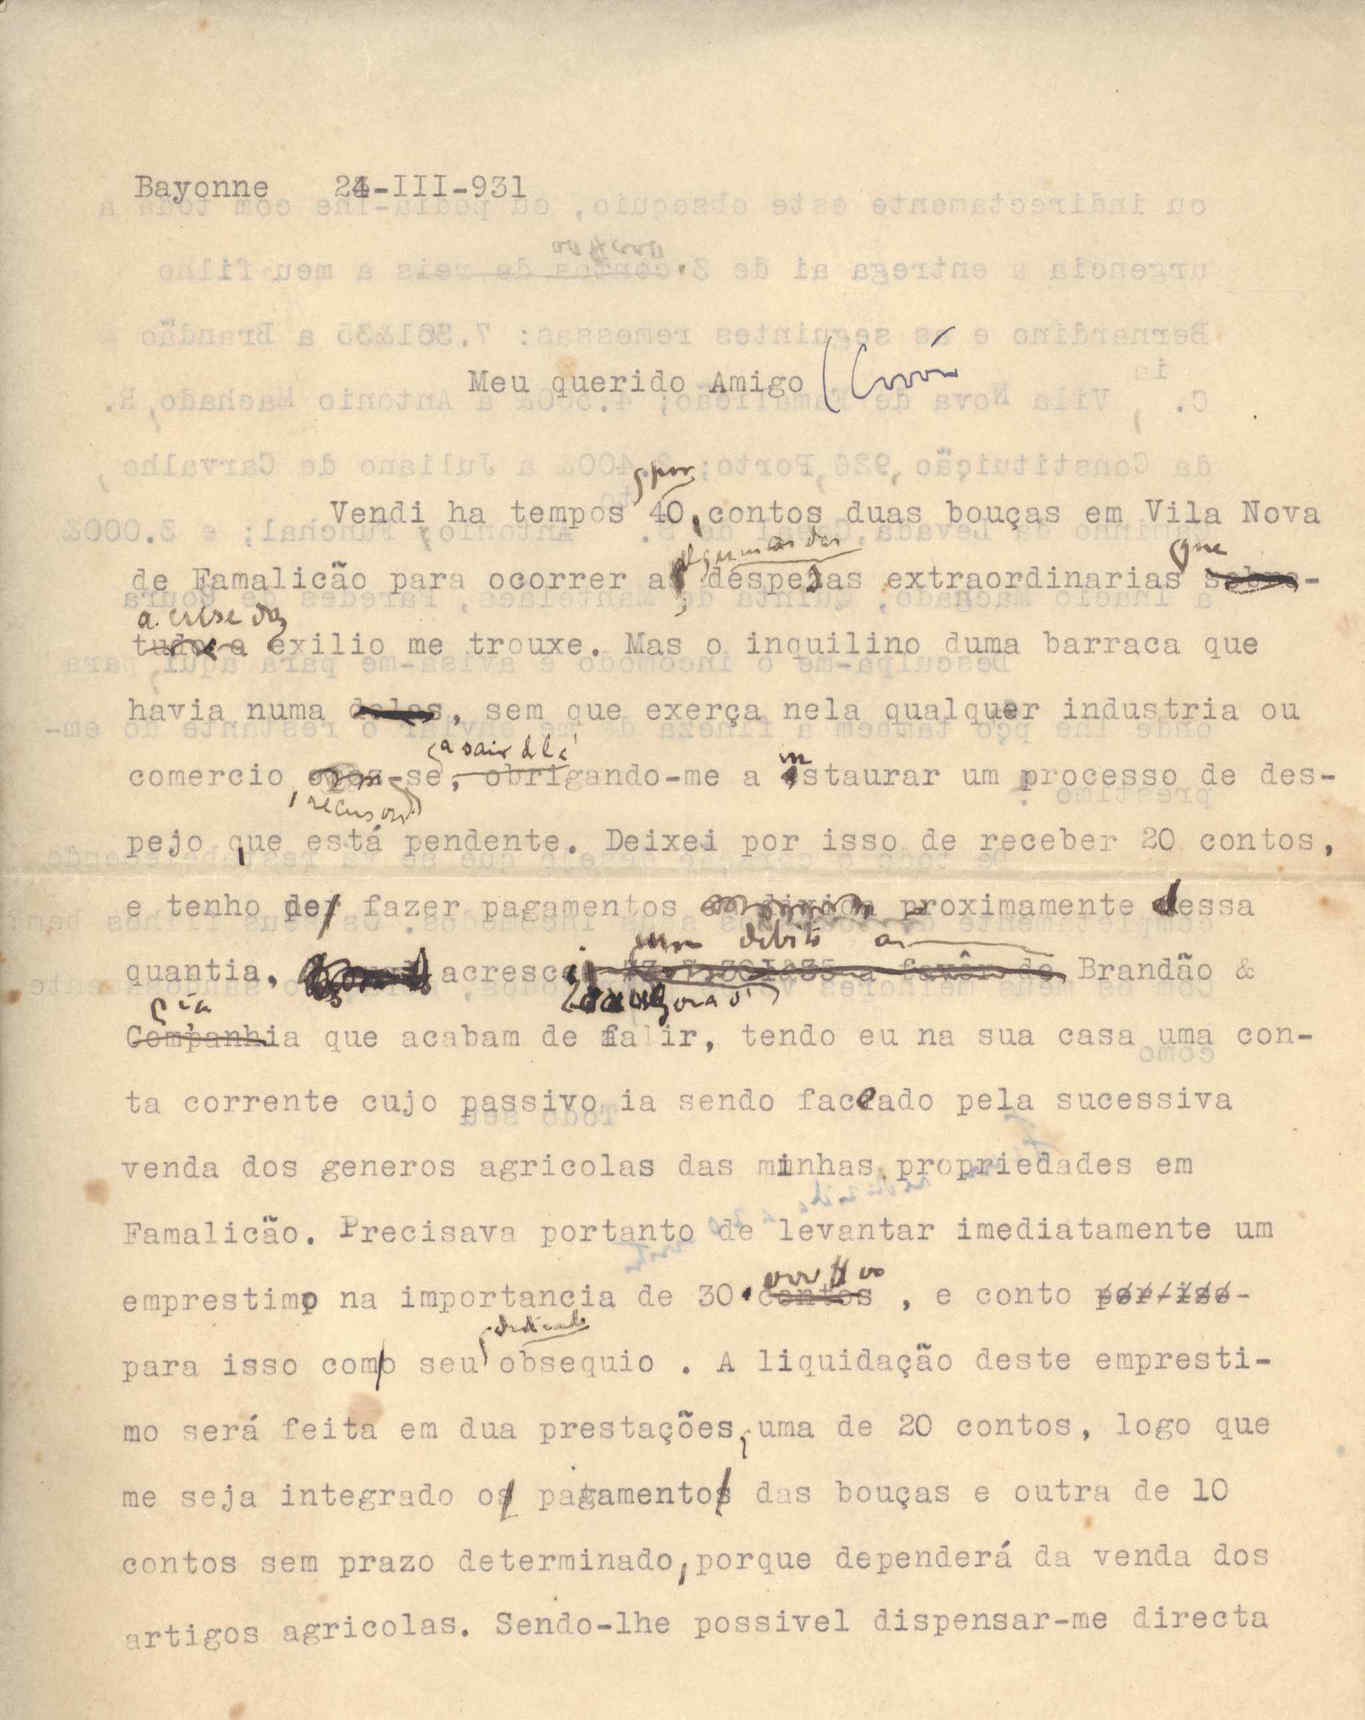 Bayonne 24-III-931
Meu querido Amigo
por
Vendi ha tempos 40 contos duas bouças em Vila Nova
algumas das
que
de Famalicão para ocorrer a despezas extraordinarias sobre-
a crise do
tudo o exilio me trouxe. Mas o inquilino duma barraca que
havia numa delas, sem que exerça nela qualquer industria ou
a sair dela
in
comercio opoz-se, obrigando-me a instaurar um processo de des-
, recusou
pejo que está pendente. Deixei por isso de receber 20 contos,
e tenho de fazer pagamentos proximamente dessa
um debito a
quantia. acresce 7.361$35 a favôr de Brandão &
agora o
Cia
Companhia que acabam de falir, tendo eu na sua casa uma con-
ta corrente cujo passivo ia sendo faceado pela sucessiva
venda dos generos agricolas das minhas propriedades em
Famalicão. Precisava portanto de levantar imediatamente um
emprestimo na importancia de 30 contos , e conto por isso-
dedicado
para isso com o seu obsequio . A liquidação deste empresti-
mo será feita em dua prestações, uma de 20 contos, logo que
me seja integrado o pagamento das bouças e outra de 10
contos sem prazo determinado, porque dependerá da venda dos
artigos agricolas. Sendo-lhe possivel dispensar-me directa